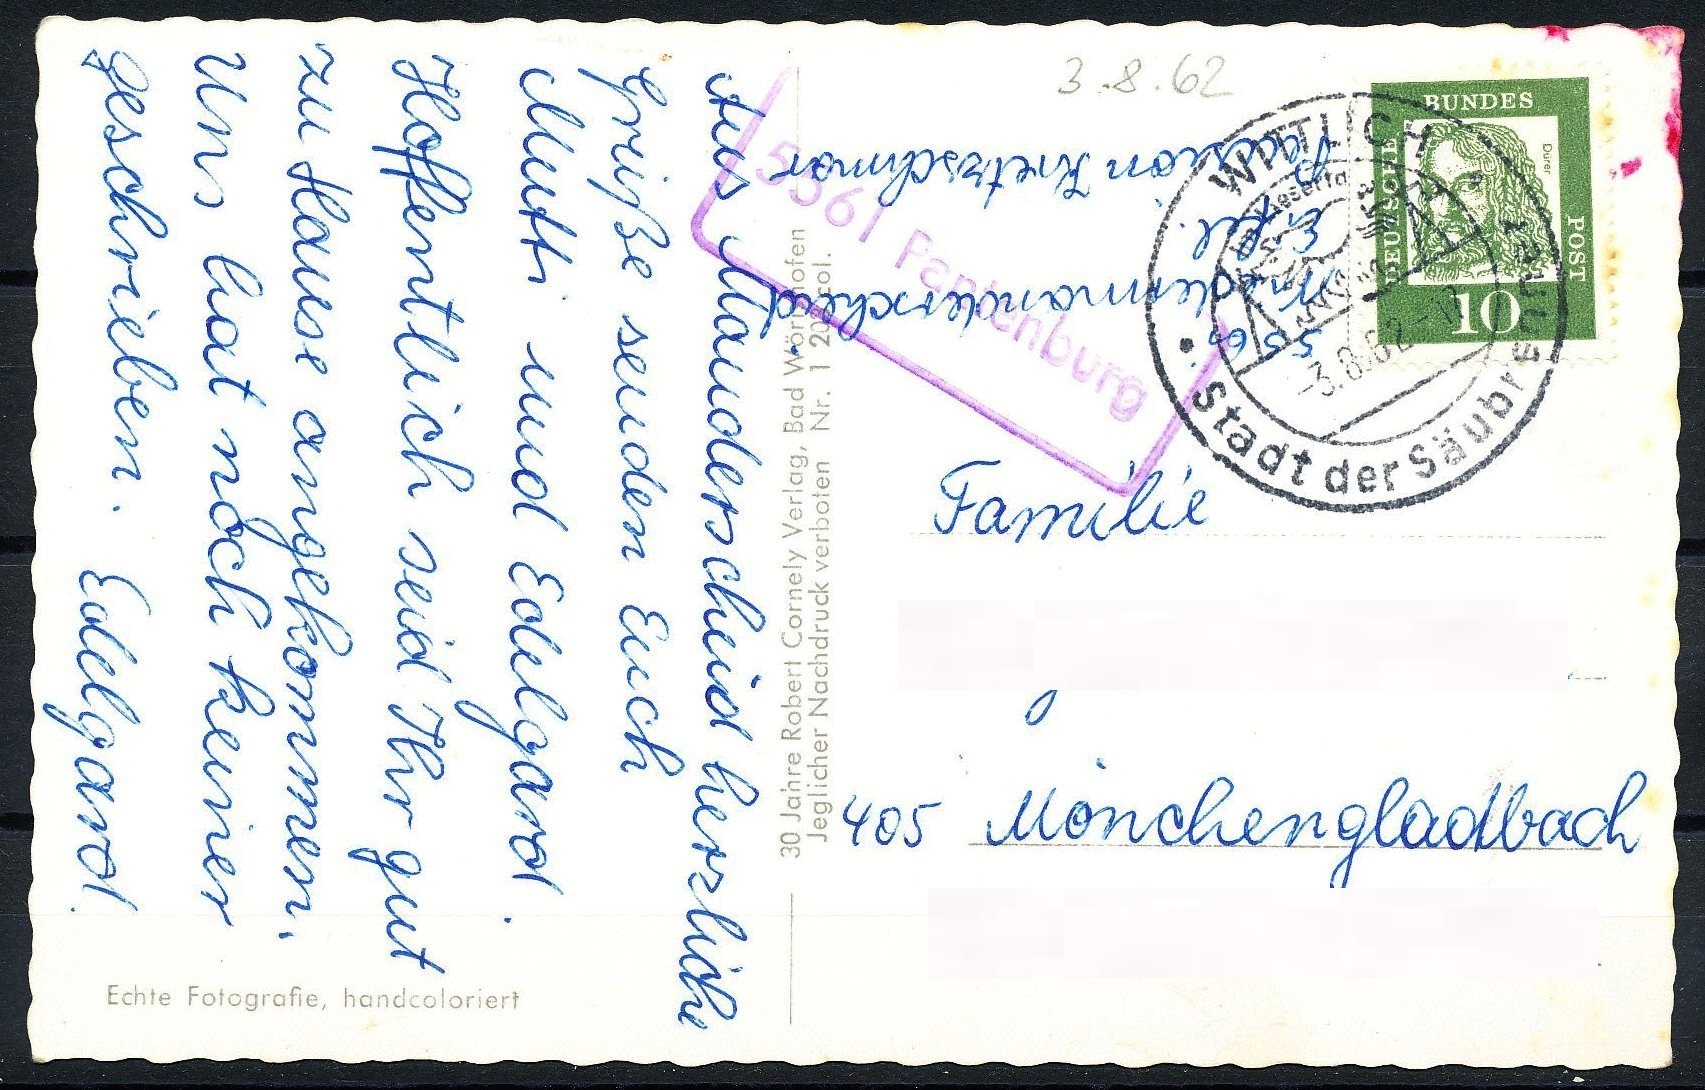 Aus Manderscheid herzliche
Grüße senden Euch
Mutti und Edelgard.
Hoffentlich seid Ihr gut
zu Hause angekommen.
Uns hat noch keiner
geschrieben. Edelgard.
Echte Fotografie, handcoloriert
30 Jahre Robert Cornely Verlag, Bad Wörishofen
Jeglicher Nachdruck verboten Nr. 1 20 col.
3.8.62
Pension Kretzschmar
Eifel.
556 Niedermanderscheid
5561 Pantenburg
WITTLICH
Stadt der Säubrennerei
-3.8.62
DEUTSCHE
BUNDES
POST
Dürer
10
Familie
405 Mönchengladbach